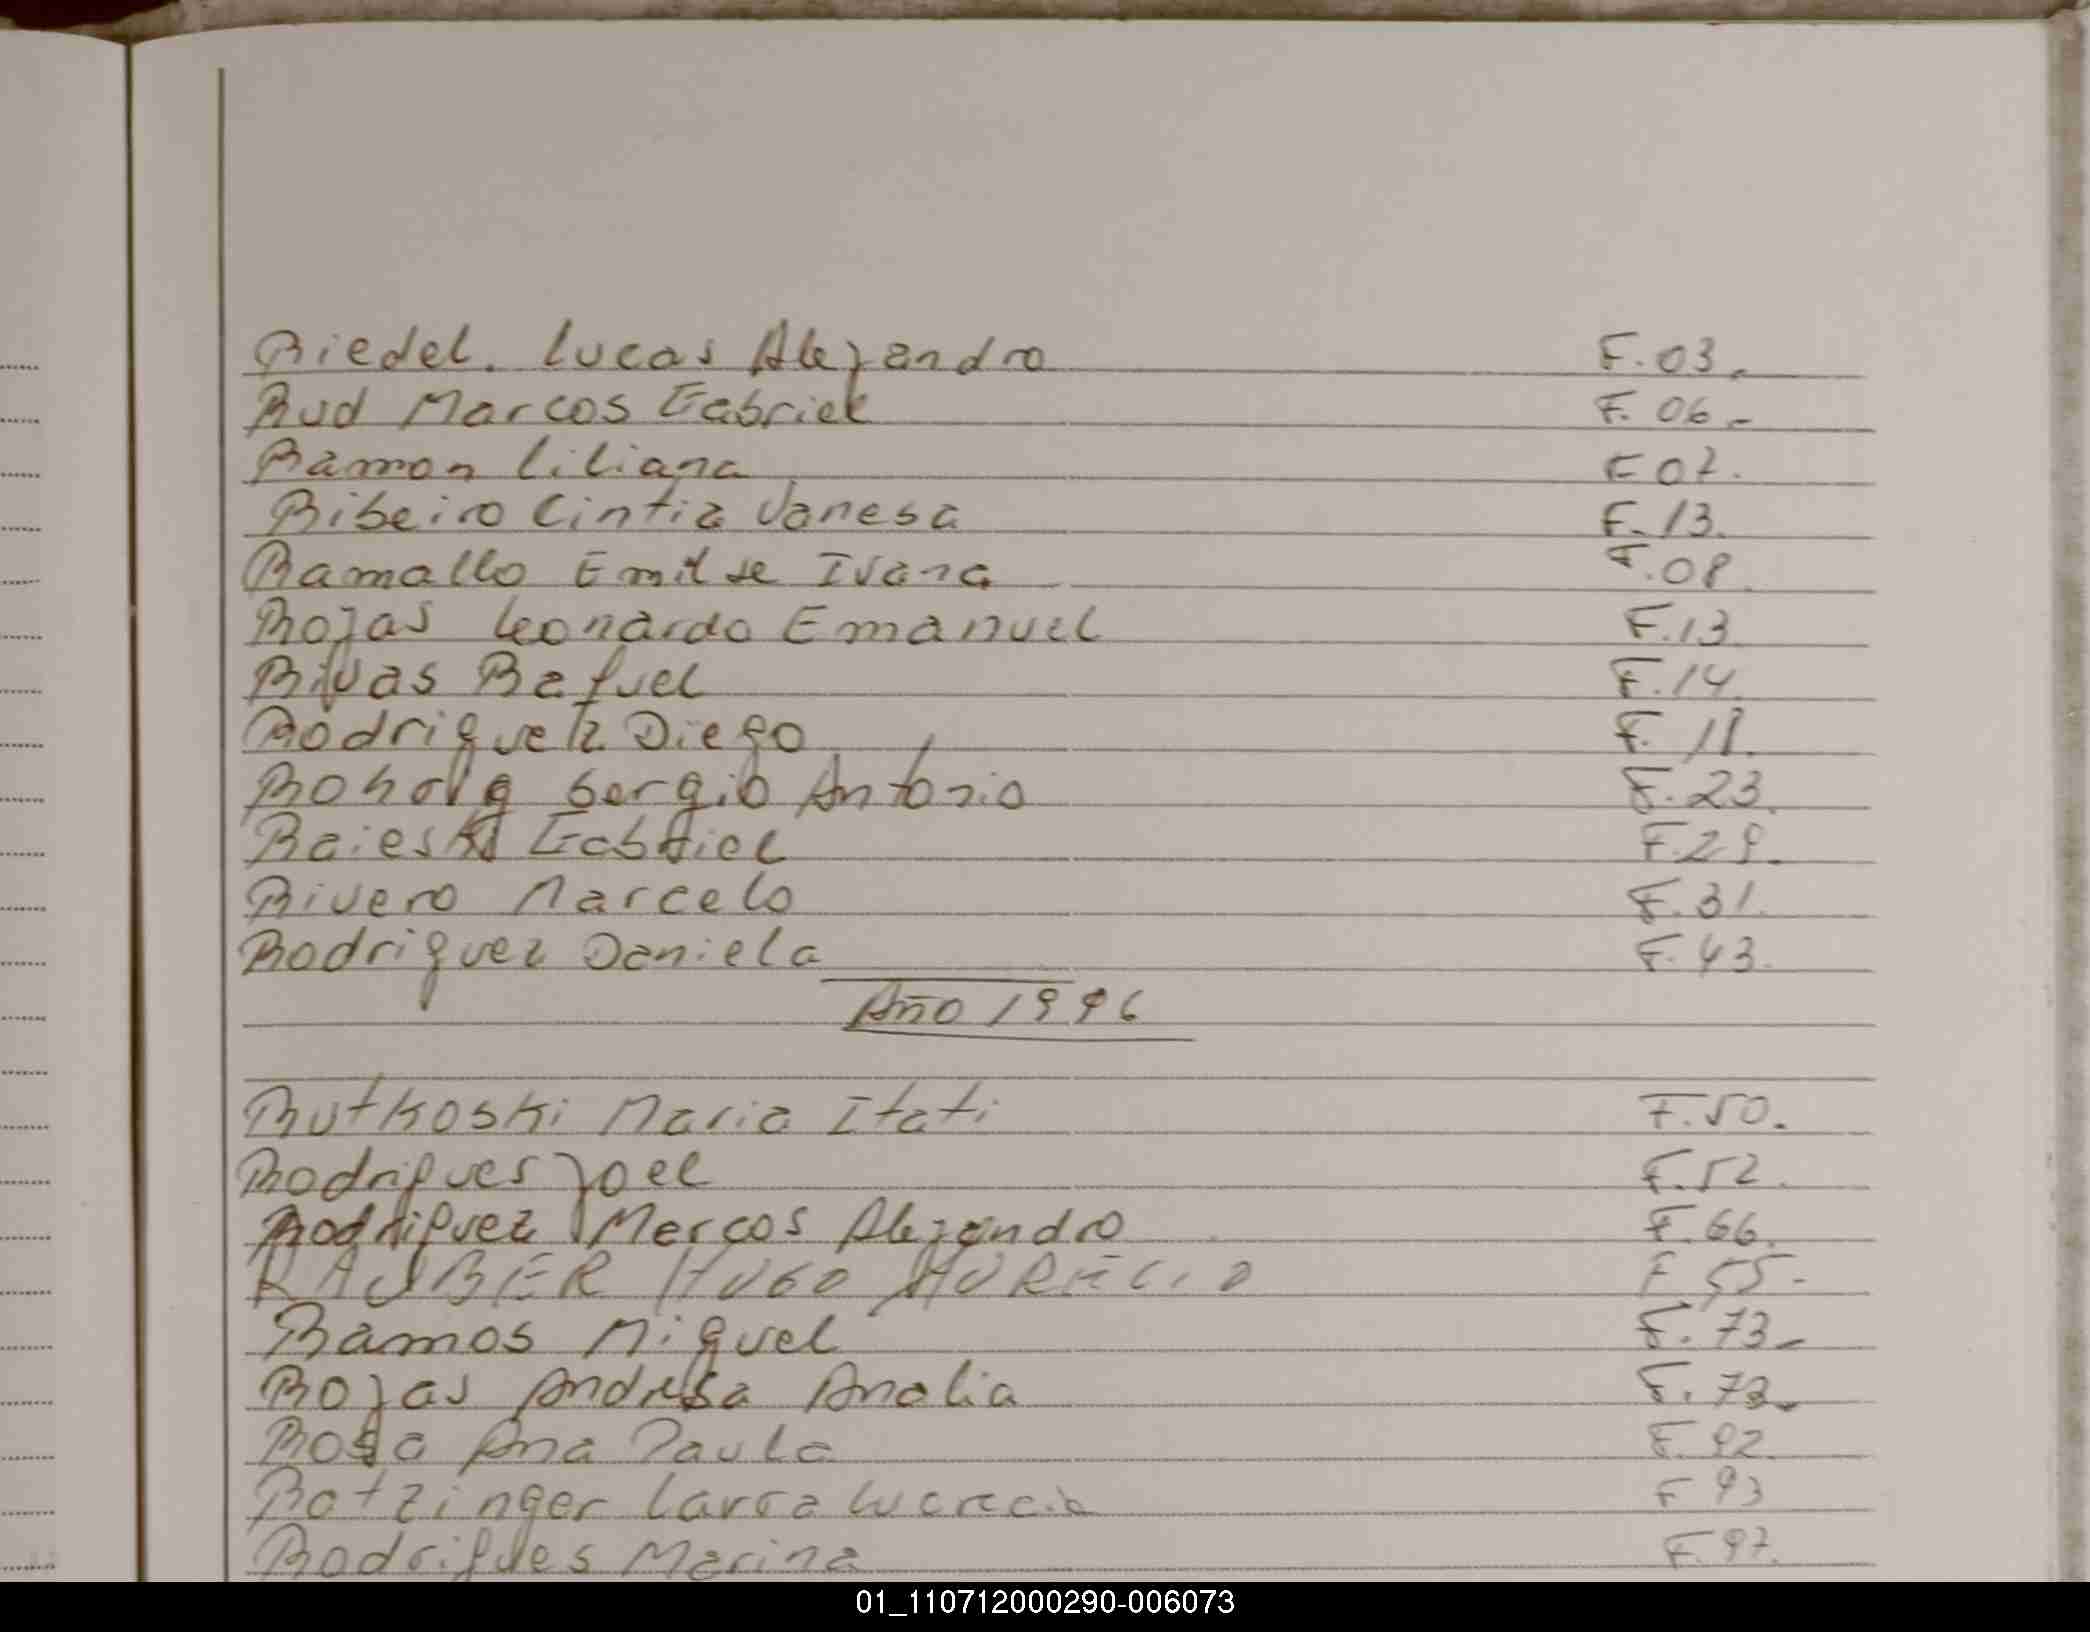 Riedel. Lucas Alejandro F.03.
Rud Marcos Gabriel F.06-
Ramon Liliana F07.
Ribeiro Cintia Vanesa F.13.
Ramallo Emilse Ivana F.08.
Rojas Leonardo Emanuel F.13.
Rivas Rafuel F.14.
Rodriguez Diego F.18.
Sergio Antonio F.23.
Raieski Gabriel F.29.
Rivero Marcelo F.31.
Rodriguez Daniela F.43.
Año 1996
Rutkoski Maria Itati F.50.
Rodrigues Joel F.52.
Rodriguez Marcos Alejandro F.66.
RAUBER HUGO F 55.
Ramos Miguel F.73-
Rojas Andresa Analia F.73-
Rosa Ana Paula F.92.
Ratzinger Laura Lucrecia F 93
Rodrigues Marina F.97.
01_110712000290-006073